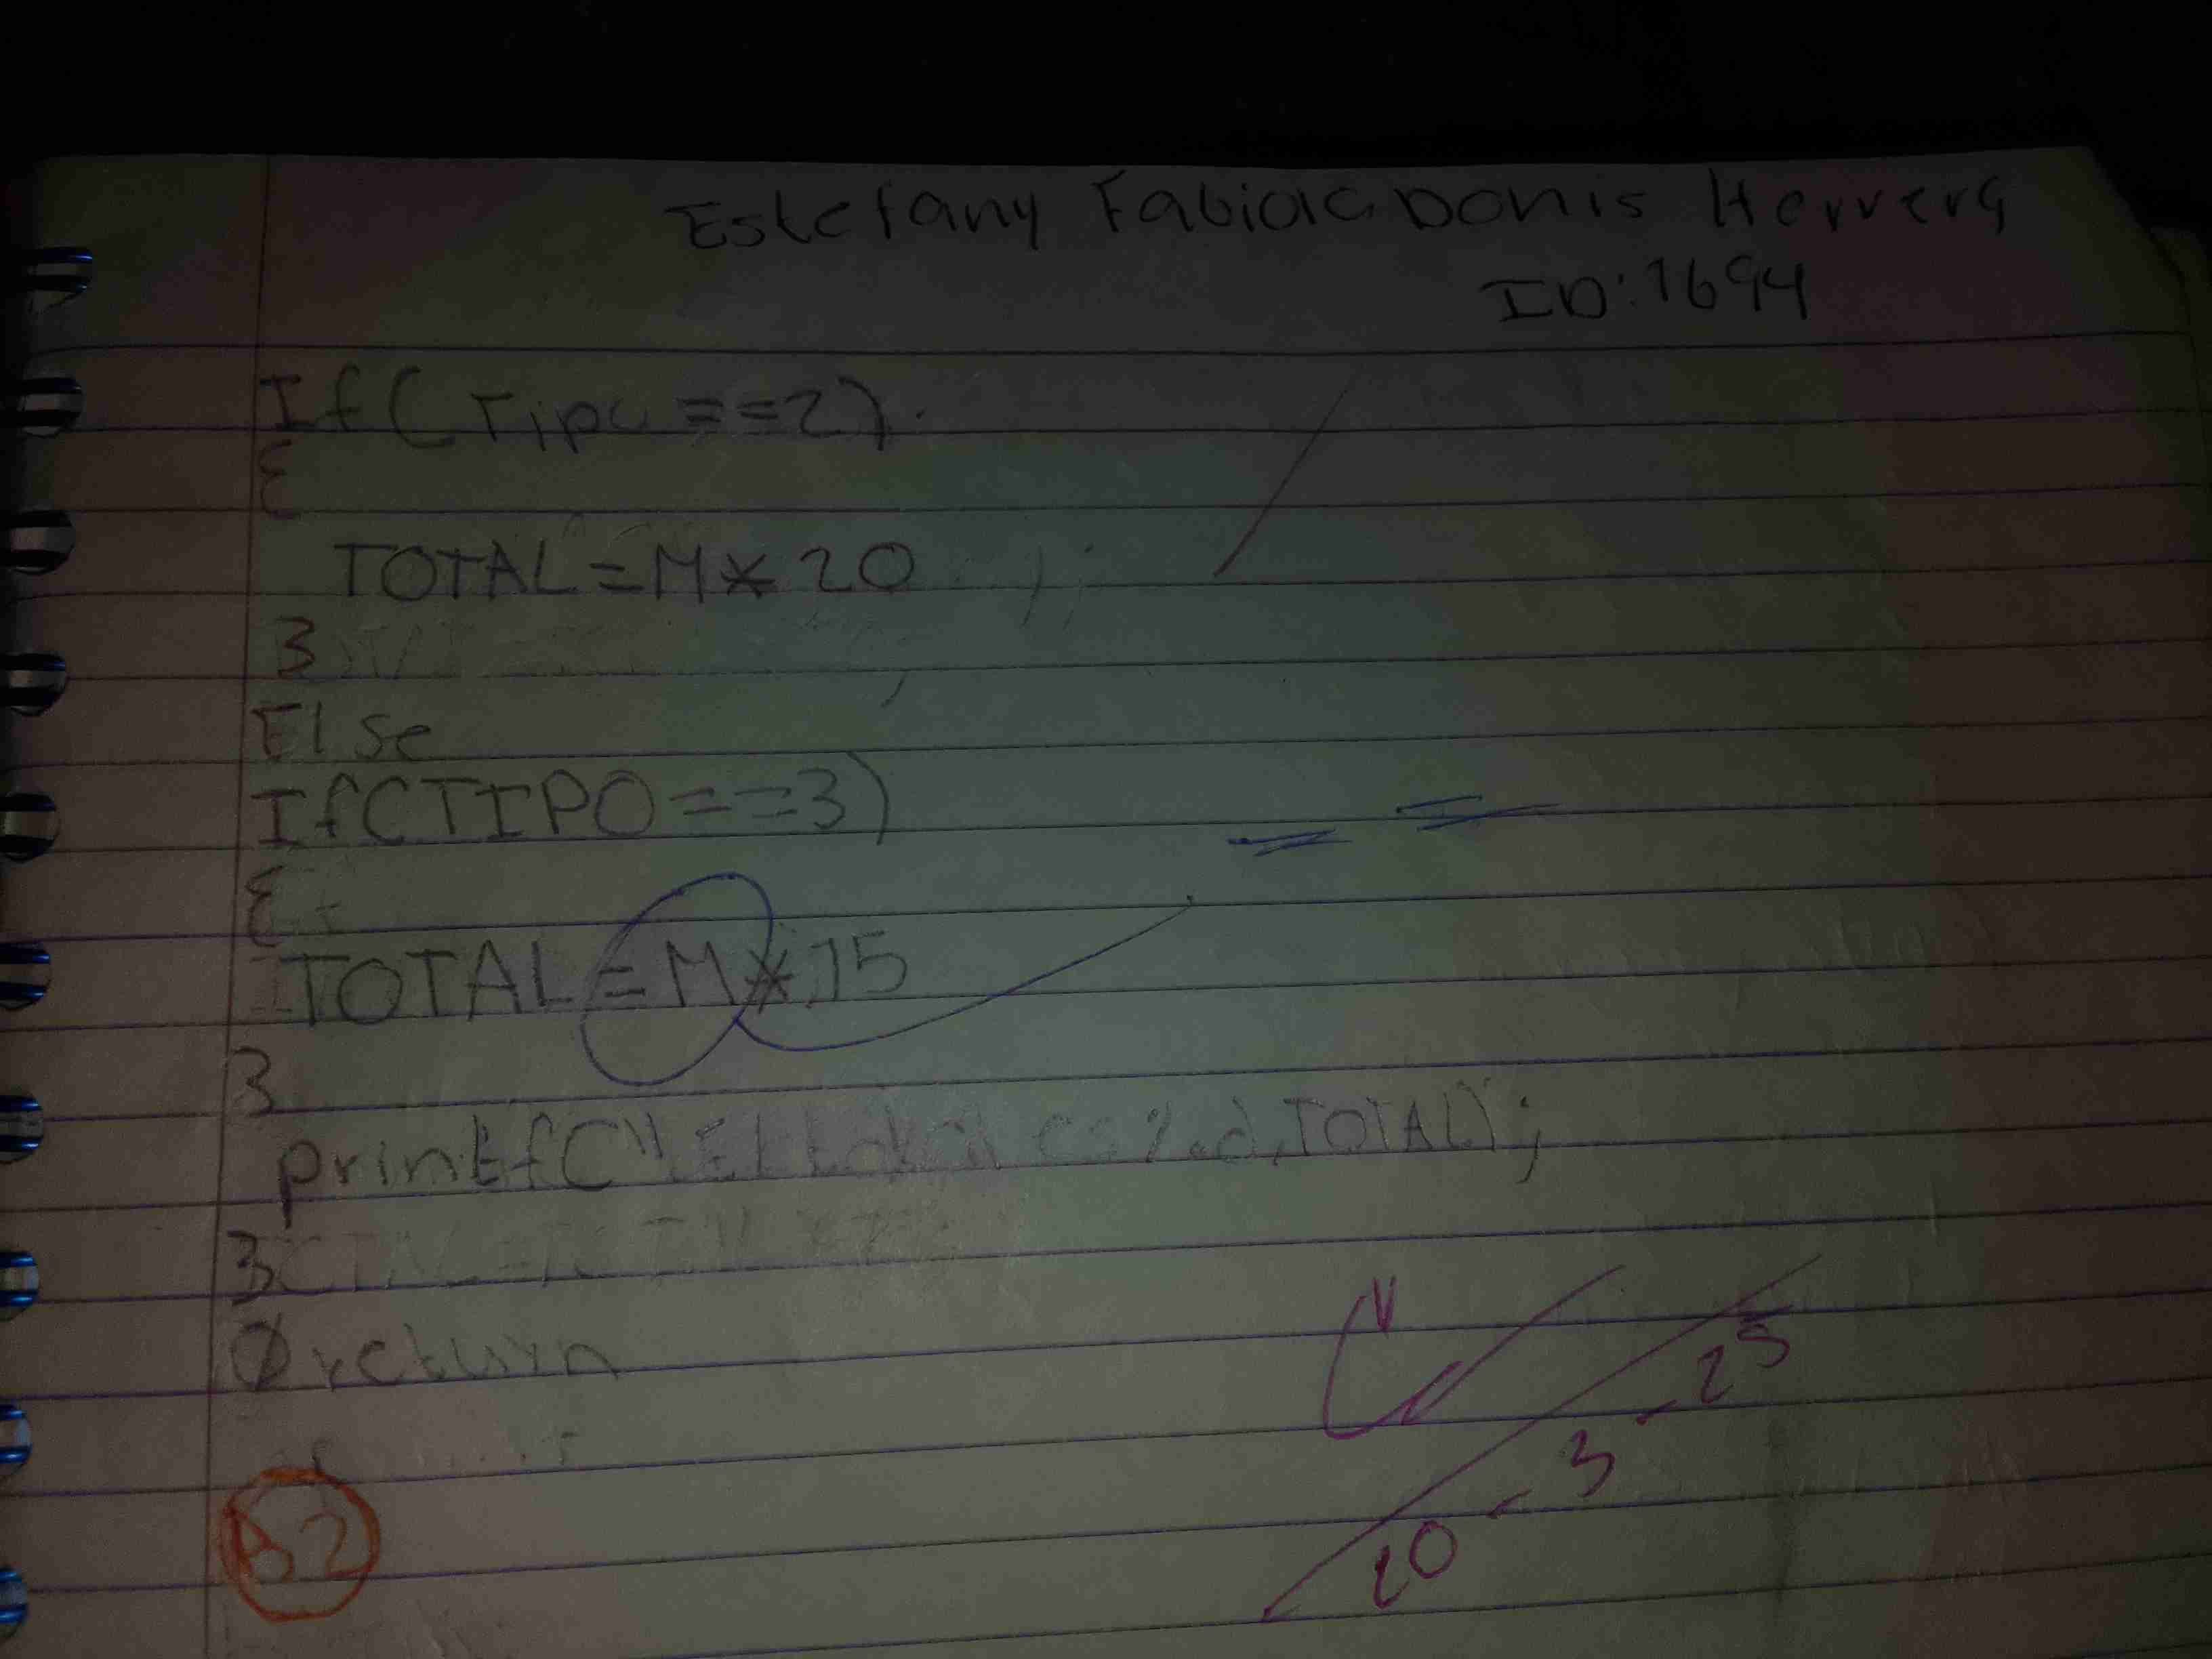 Estefany Fabiola Donis Herrera
ID:1694
If(Tipo===2).
{
TOTAL=M*20
}
Else
If(TIPO===3)
{
TOTAL=M*15
}
printf("El total es %.d,TOTAL);
}
0 return
B2
20-3-25